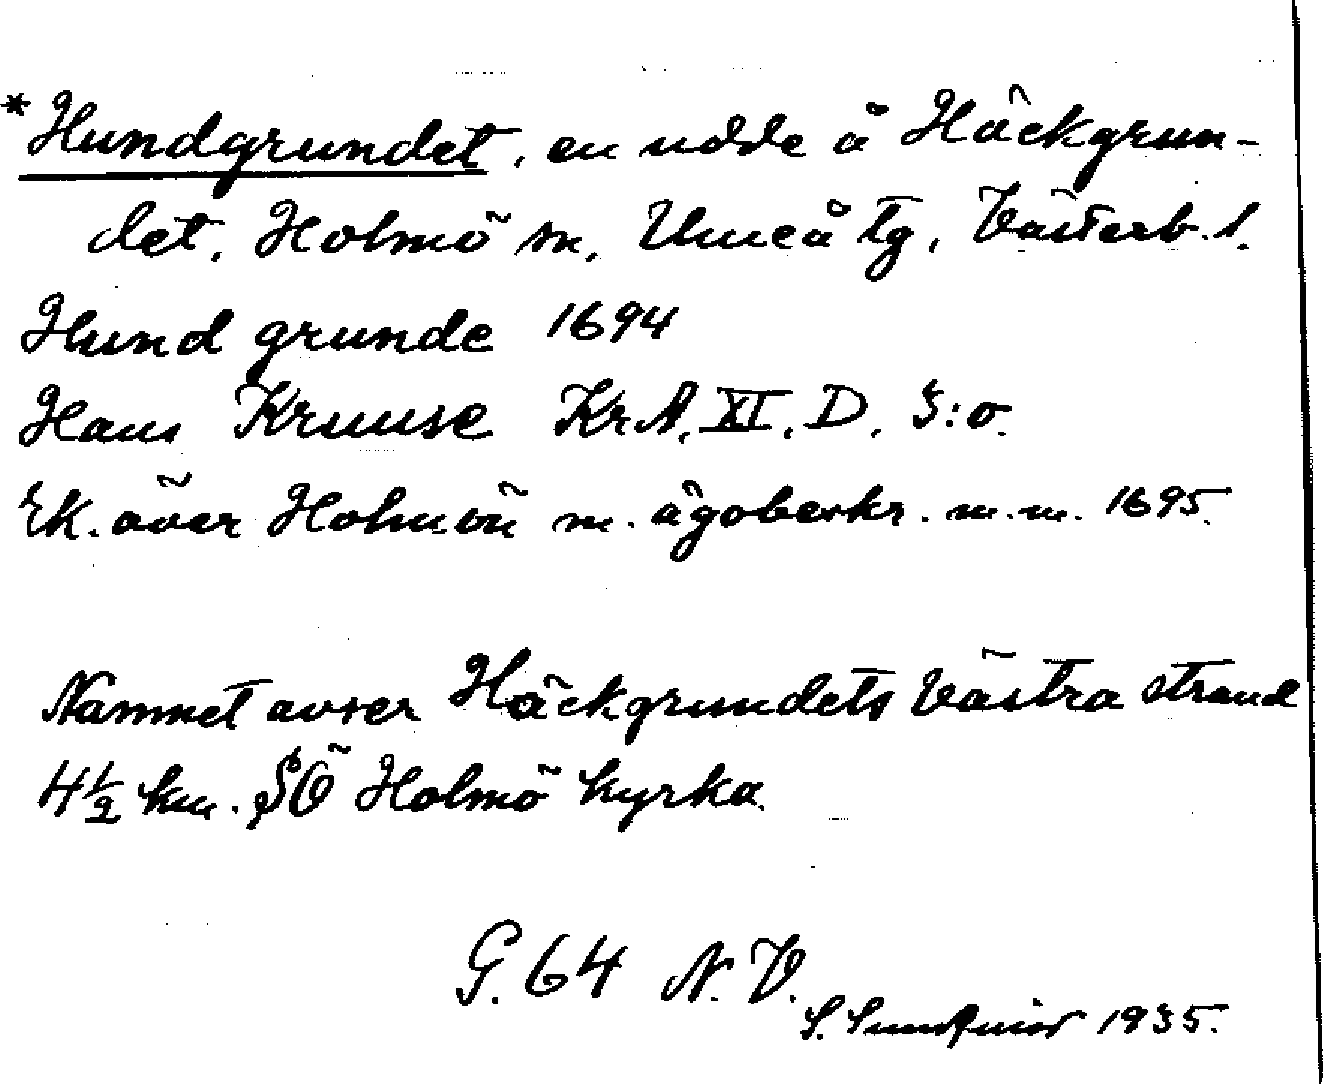 *Hundgrundet, en udde å Häckgrun-
det, Holmö sn, Umeå tg, Västerb. l.
Hund grunde 1694
Hans Kruuse Kr.A. XI. D. 5:o.
Ek. över Holmön m. ägobeskr. m.m. 1695.
Namnet avser Häckgrundets västra strand
4½ km. SÖ Holmö kyrka.
G. 64 N.V.
S. 1935.